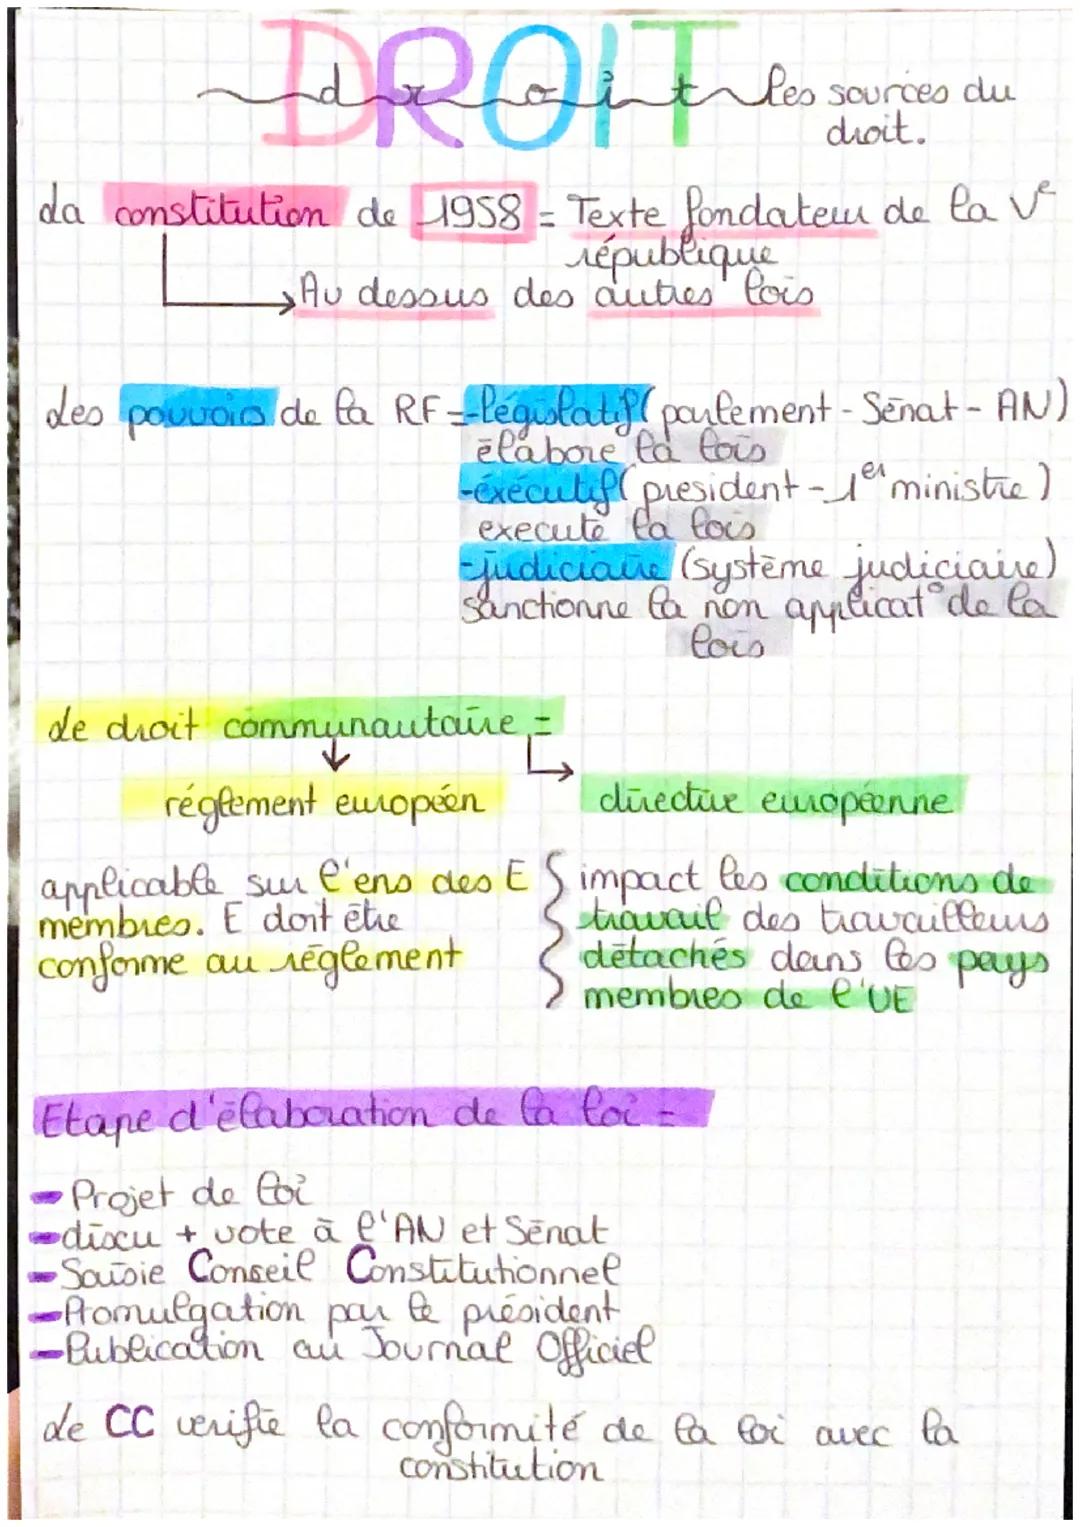 DROIT
droit les sources du
droit.
La constitution de 1958 = Texte fondateur de la Ve
république
Au dessus des autres lois
Les pouvoirs de la RF = -législatif (parlement - Sénat - AN)
élabore la lois
-éxécutif (president - 1er ministre)
execute la lois
-judiciaire (système judiciaire)
sanctionne la non applicat° de la
lois
Le droit communautaire =
réglement européen directive européenne
applicable sur l'ens des E
membres. E doit être
conforme au réglement
impact les conditions de
travail des travailleurs
détachés dans les pays
membres de l'UE
Etape d'élaboration de la loi =
- Projet de loi
- discu + vote à l'AN et Sénat
- Saisie Conseil Constitutionnel
- Promulgation par le président
- Publication au Journal Officiel
Le CC verifie la conformité de la loi avec la
constitution